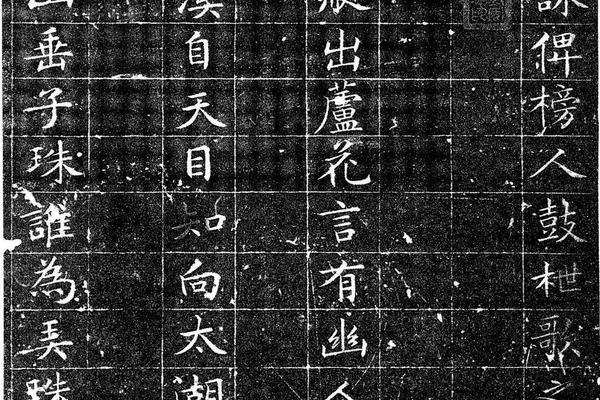 詠俾榜人鼓枻歌之
出蘆花言有幽人
溪自天目知向太湖
山垂子珠誰為弄珠